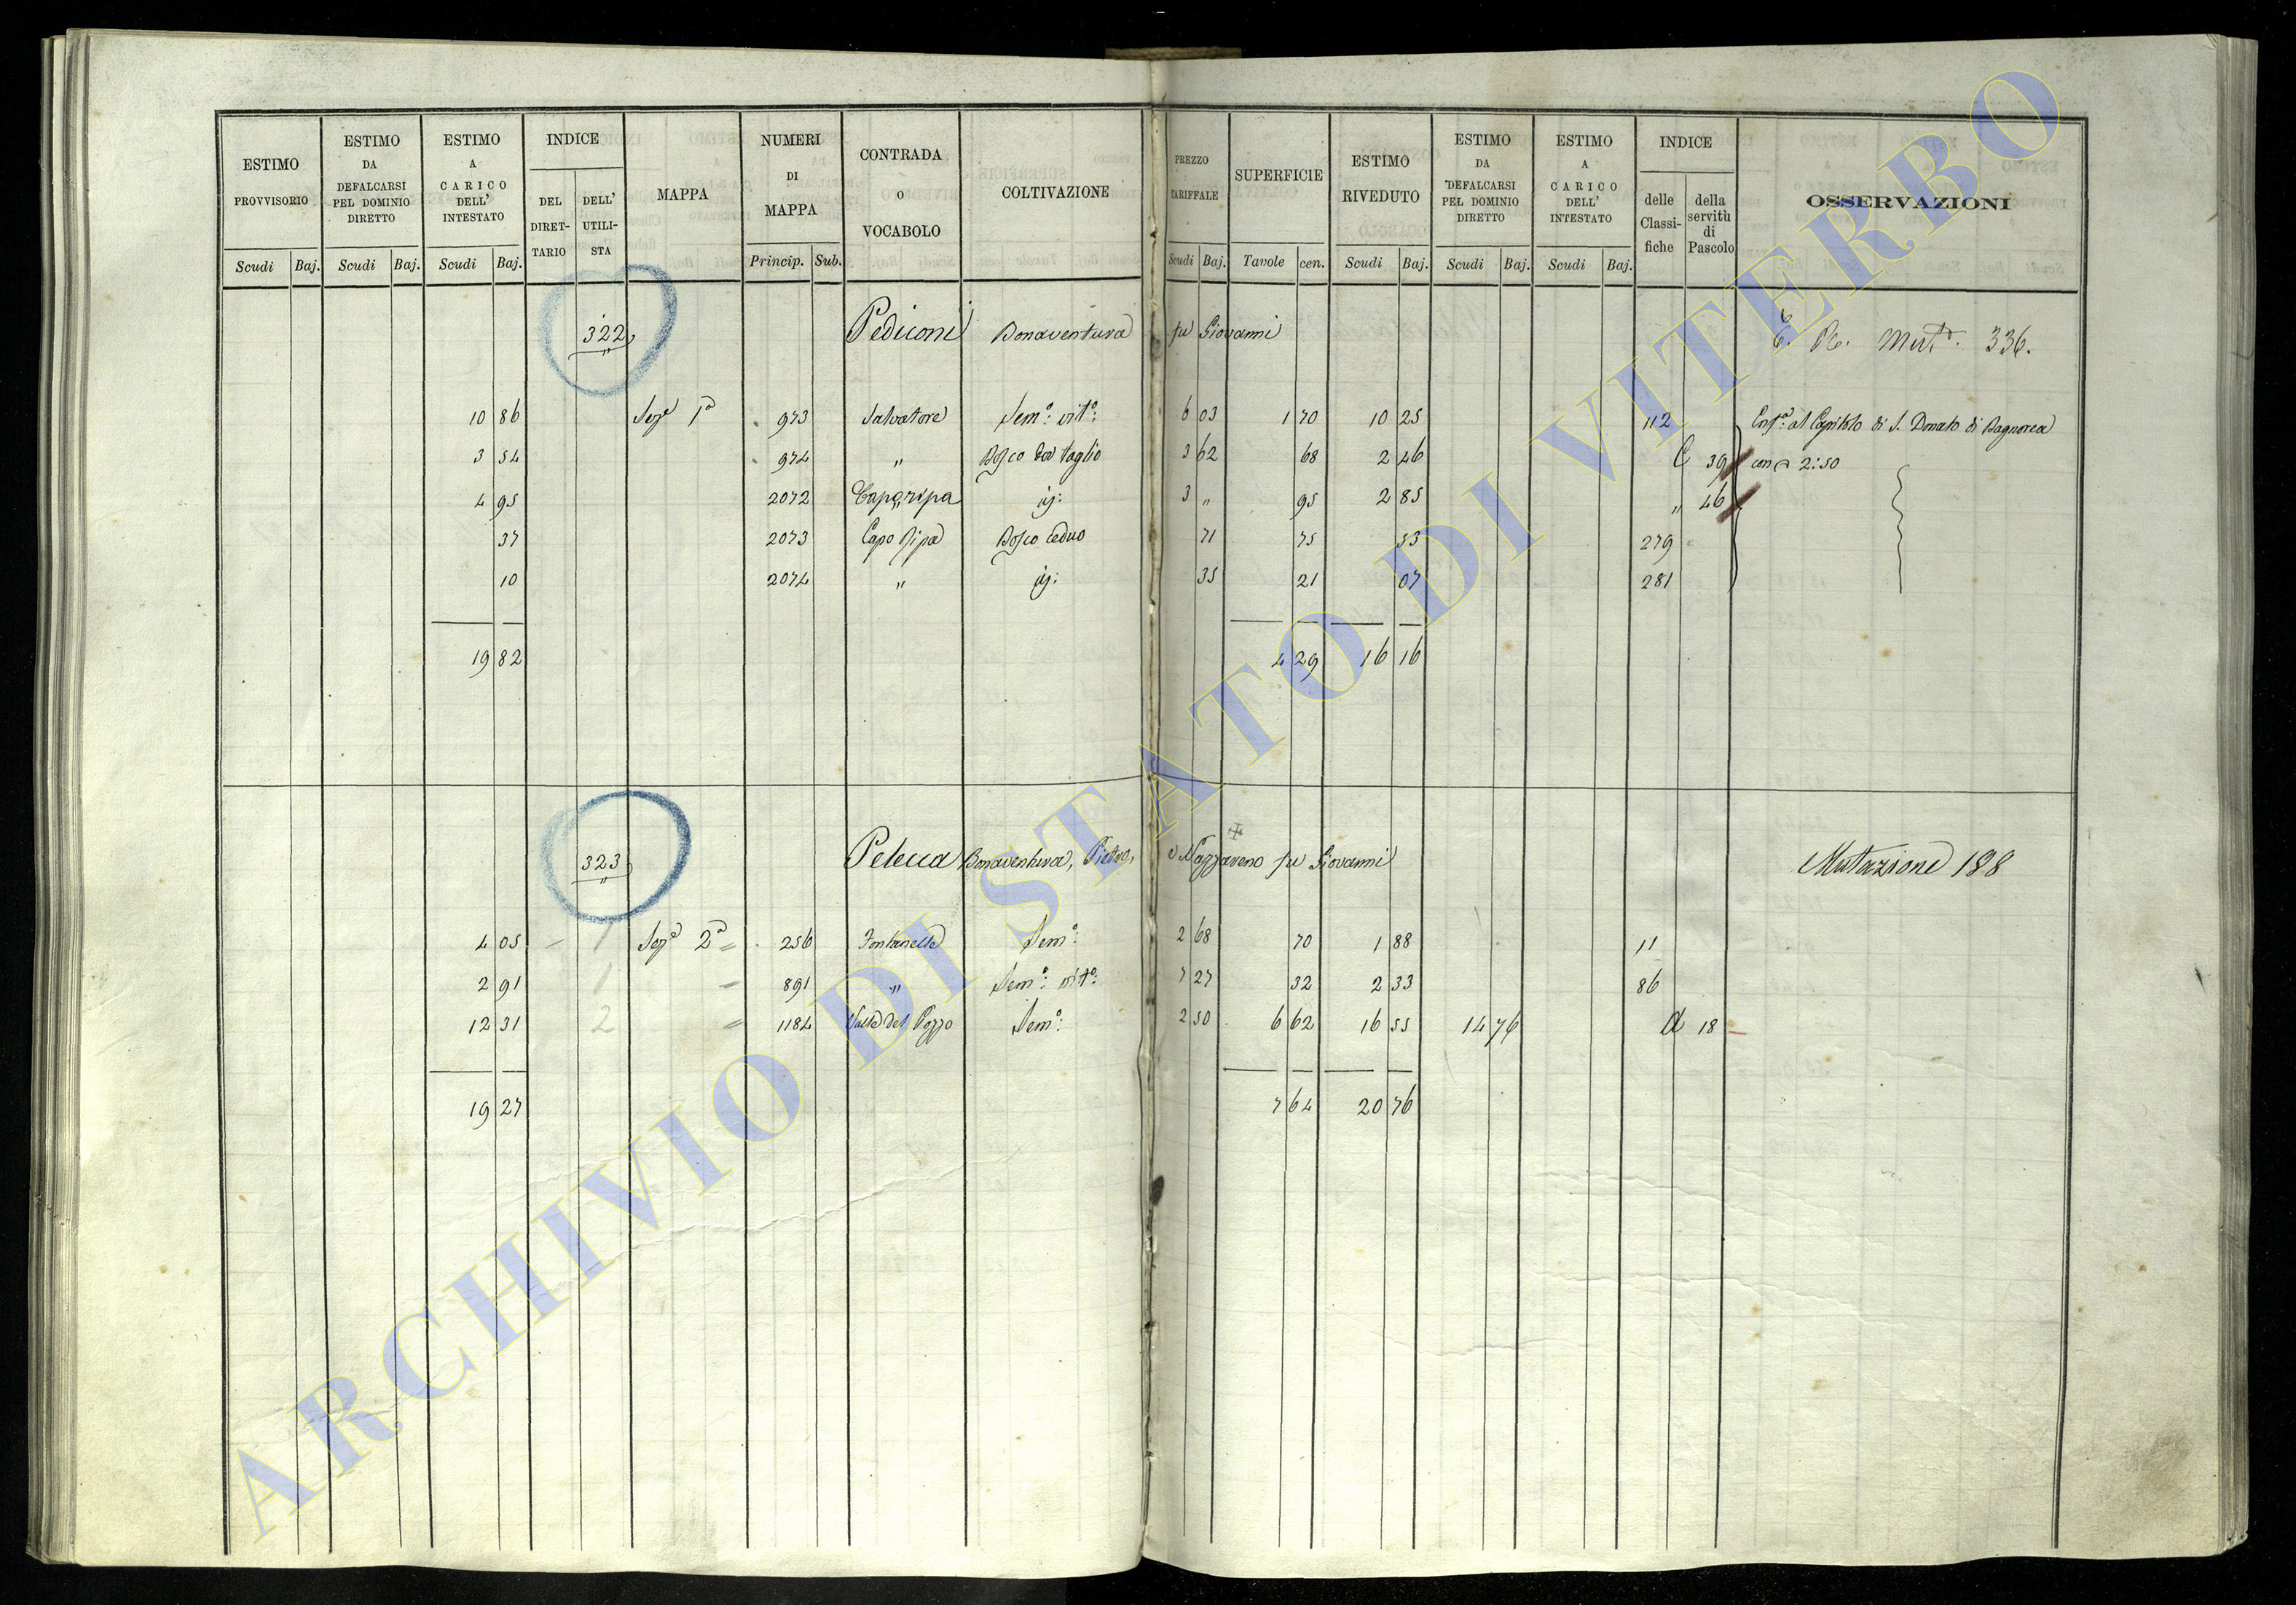 ESTIMO PROVVISORIO
Scudi Baj.
ESTIMO DA DEFALCARSI PEL DOMINIO DIRETTO
Scudi Baj.
ESTIMO A CARICO DELL' INTESTATO
Scudi Baj.
INDICE
DEL DIRET- TARIO
DELL' UTILI- STA
MAPPA
NUMERI DI MAPPA
Princip. Sub.
CONTRADA o VOCABOLO
COLTIVAZIONE
PREZZO TARIFFALE
Scudi Baj.
SUPERFICIE
Tavole cen.
ESTIMO RIVEDUTO
Scudi Baj.
ESTIMO DA DEFALCARSI PEL DOMINIO DIRETTO
Scudi Baj.
ESTIMO A CARICO DELL' INTESTATO
Scudi Baj.
INDICE
delle Classi- fiche
della servitù di Pascolo
OSSERVAZIONI
322 Pediconi Bonaventura fu Giovanni Mut. 336.
10 86 Seze 1a 973 Salvatore Semo: vito: 6 03 1 70 10 25 112 al Capitolo di S. Donato di Bagnorea
3 54 974 " Bosco da taglio 3 62 68 2 46 C 39 con 2:50
4 95 2072 Caporipa id: 3 " 95 2 85 " 46
37 2073 Capo Ripa Bosco ceduo 71 75 53 279
10 2074 " id: 35 21 07 281
19 82 4 29 16 16
323 Pelecca Bonaventura, Pietro, e Nazzareno fu Giovanni Mutazione 188
4 05 1 Seze 2a 256 Fontanelle Semo: 2 68 70 1 88 11
2 91 1 891 " Semo: vito: 7 27 32 2 33 86
12 31 2 1184 Valle del Pozzo Semo: 2 50 6 62 16 55 14 76 A 18
19 27 7 64 20 76
ARCHIVIO DI STATO DI VITERBO